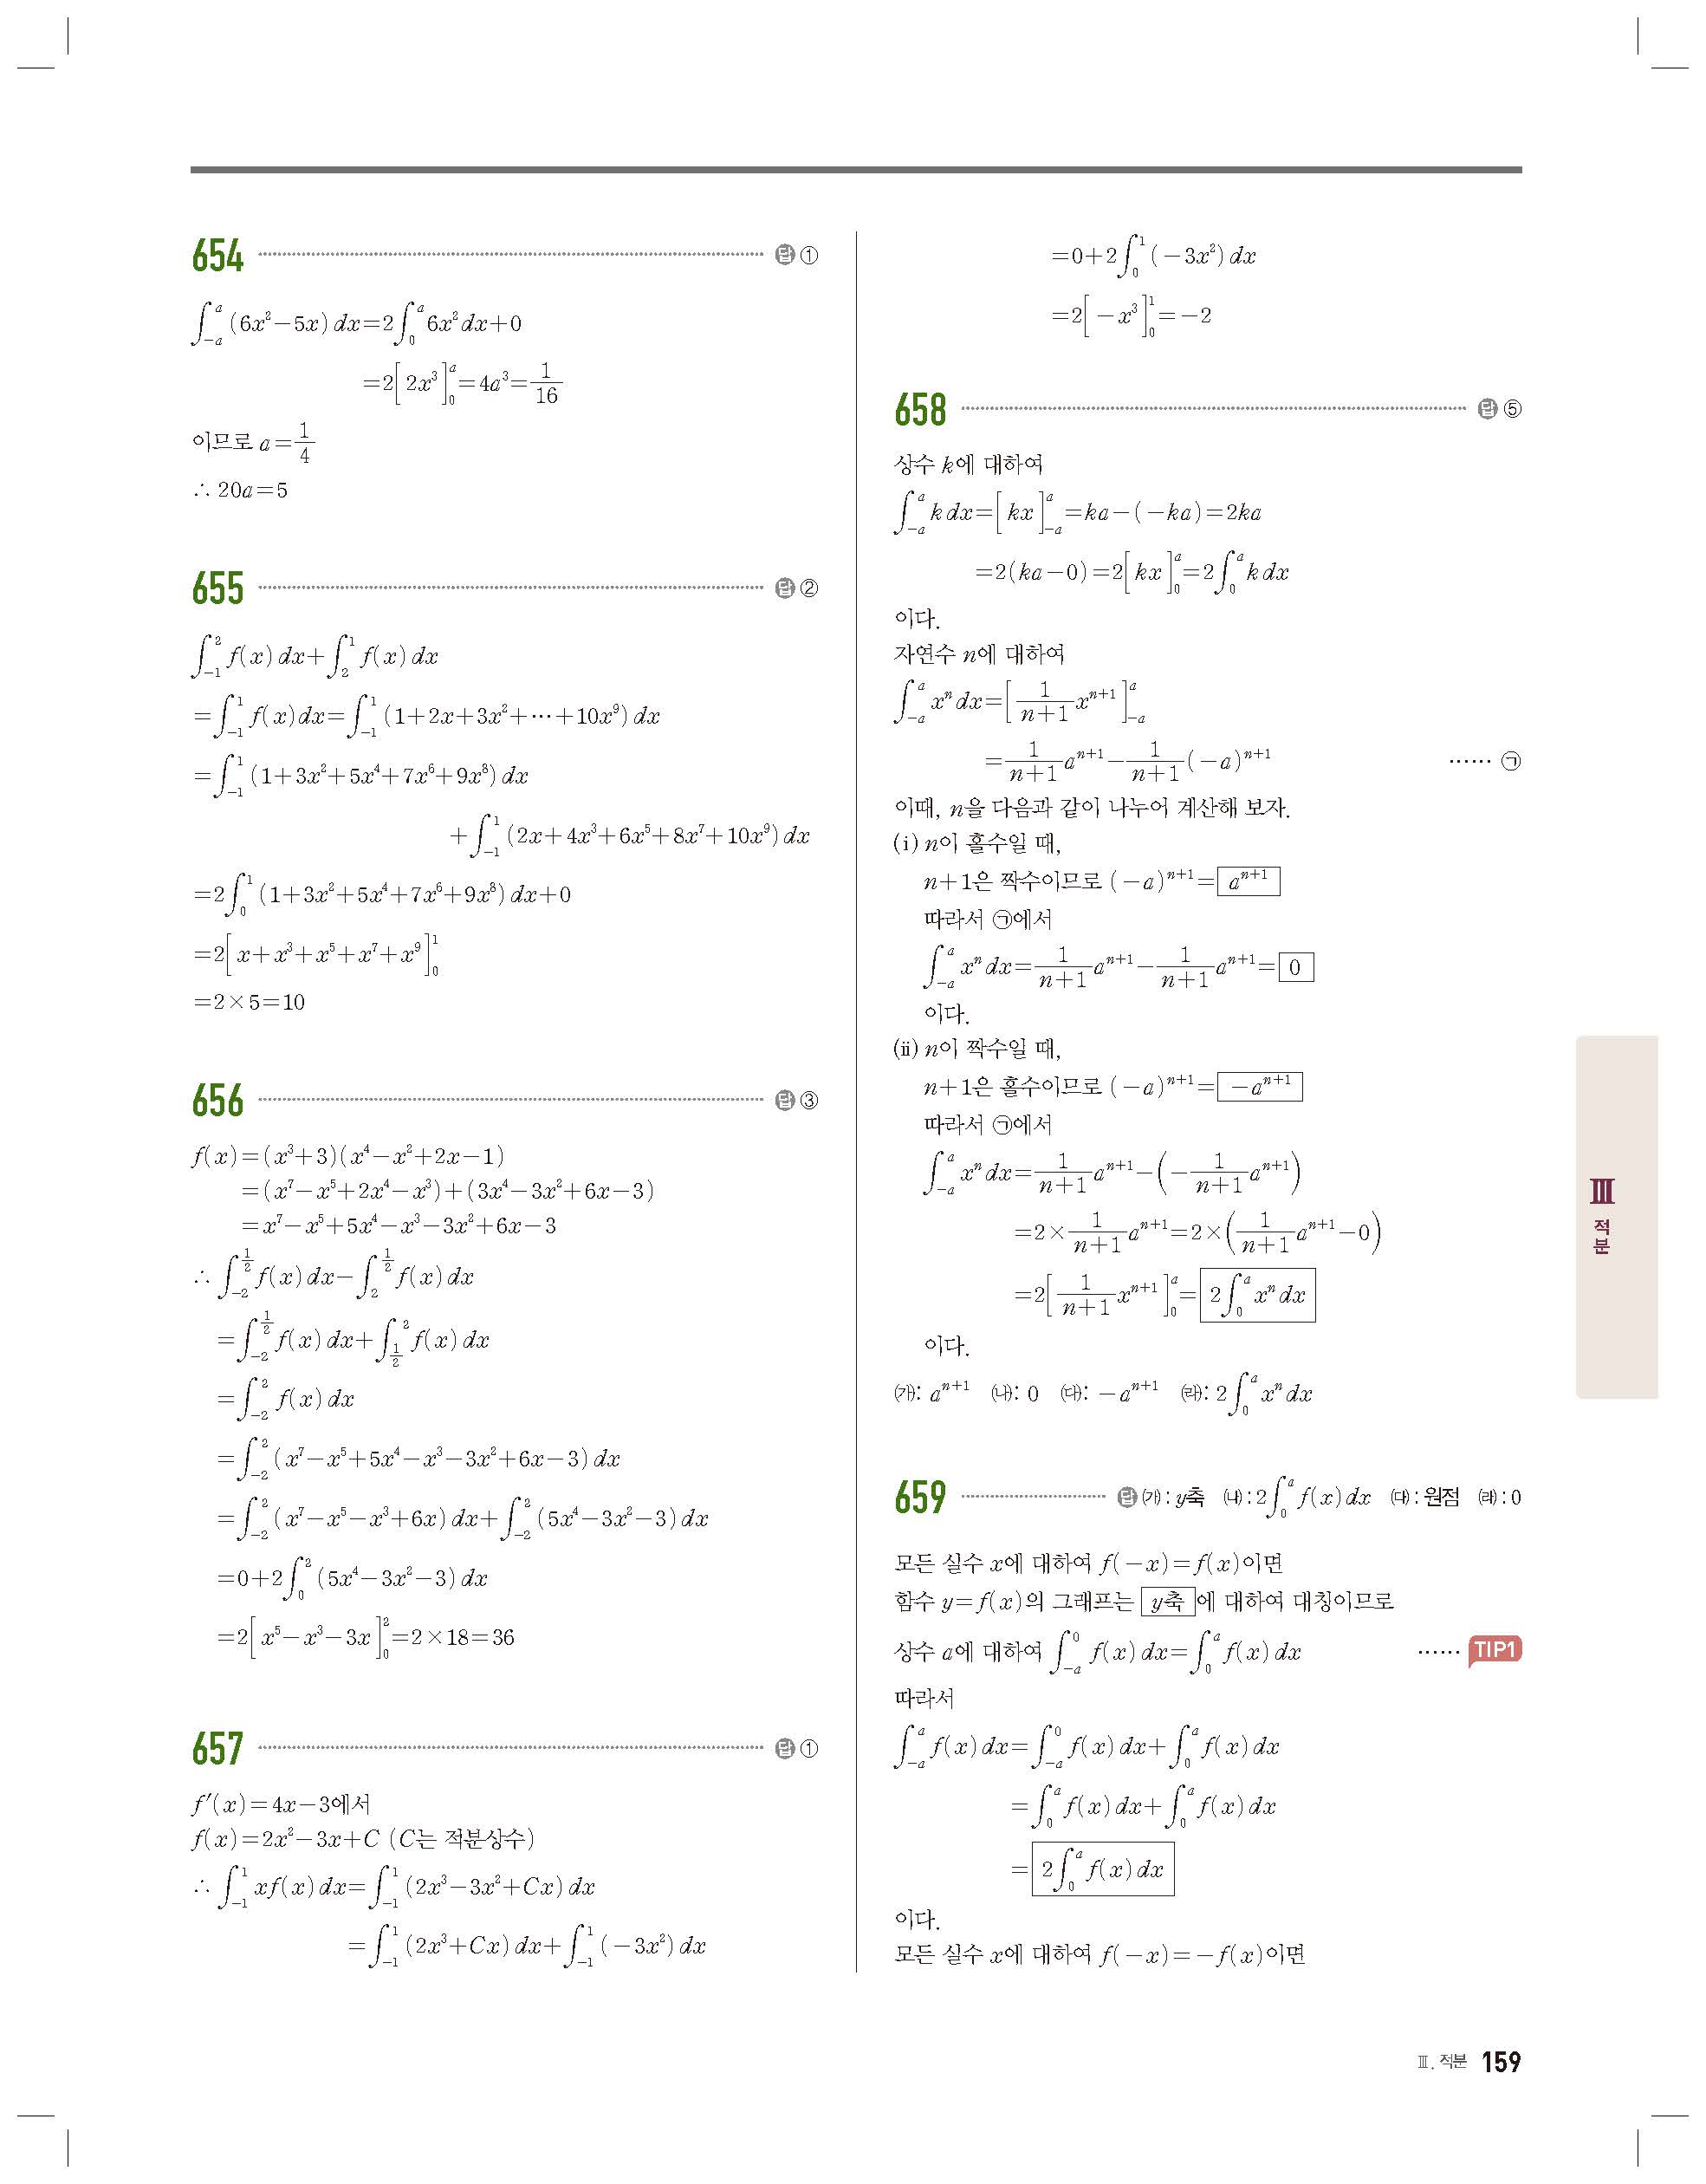 654 답 ①
∫_{-a}^{a} (6x²-5x) dx=2∫_{0}^{a} 6x² dx+0
=2[2x³]_{0}^{a}=4a³=1/16
이므로 a=1/4
∴ 20a=5
655 답 ②
∫_{-1}^{2} f(x) dx+∫_{2}^{1} f(x) dx
=∫_{-1}^{1} f(x)dx=∫_{-1}^{1} (1+2x+3x²+⋯+10x⁹) dx
=∫_{-1}^{1} (1+3x²+5x⁴+7x⁶+9x⁸) dx
+∫_{-1}^{1} (2x+4x³+6x⁵+8x⁷+10x⁹) dx
=2∫_{0}^{1} (1+3x²+5x⁴+7x⁶+9x⁸) dx+0
=2[x+x³+x⁵+x⁷+x⁹]_{0}^{1}
=2×5=10
656 답 ③
f(x)=(x³+3)(x⁴-x²+2x-1)
=(x⁷-x⁵+2x⁴-x³)+(3x⁴-3x²+6x-3)
=x⁷-x⁵+5x⁴-x³-3x²+6x-3
∴ ∫_{-2}^{1/2} f(x) dx-∫_{2}^{1/2} f(x) dx
=∫_{-2}^{1/2} f(x) dx+∫_{1/2}^{2} f(x) dx
=∫_{-2}^{2} f(x) dx
=∫_{-2}^{2} (x⁷-x⁵+5x⁴-x³-3x²+6x-3) dx
=∫_{-2}^{2} (x⁷-x⁵-x³+6x) dx+∫_{-2}^{2} (5x⁴-3x²-3) dx
=0+2∫_{0}^{2} (5x⁴-3x²-3) dx
=2[x⁵-x³-3x]_{0}^{2}=2×18=36
657 답 ①
f′(x)=4x-3에서
f(x)=2x²-3x+C (C는 적분상수)
∴ ∫_{-1}^{1} xf(x) dx=∫_{-1}^{1} (2x³-3x²+Cx) dx
=∫_{-1}^{1} (2x³+Cx) dx+∫_{-1}^{1} (-3x²) dx
=0+2∫_{0}^{1} (-3x²) dx
=2[-x³]_{0}^{1}=-2
658 답 ⑤
상수 k에 대하여
∫_{-a}^{a} k dx=[kx]_{-a}^{a}=ka-(-ka)=2ka
=2(ka-0)=2[kx]_{0}^{a}=2∫_{0}^{a} k dx
이다.
자연수 n에 대하여
∫_{-a}^{a} xⁿ dx=[1/(n+1) xⁿ⁺¹]_{-a}^{a}
=1/(n+1) aⁿ⁺¹-1/(n+1) (-a)ⁿ⁺¹ ⋯⋯ ㉠
이때, n을 다음과 같이 나누어 계산해 보자.
(ⅰ) n이 홀수일 때,
n+1은 짝수이므로 (-a)ⁿ⁺¹= aⁿ⁺¹
따라서 ㉠에서
∫_{-a}^{a} xⁿ dx=1/(n+1) aⁿ⁺¹-1/(n+1) aⁿ⁺¹= 0
이다.
(ⅱ) n이 짝수일 때,
n+1은 홀수이므로 (-a)ⁿ⁺¹= -aⁿ⁺¹
따라서 ㉠에서
∫_{-a}^{a} xⁿ dx=1/(n+1) aⁿ⁺¹-(-1/(n+1) aⁿ⁺¹)
=2×1/(n+1) aⁿ⁺¹=2×(1/(n+1) aⁿ⁺¹-0)
=2[1/(n+1) xⁿ⁺¹]_{0}^{a}= 2∫_{0}^{a} xⁿ dx
이다.
㈎: aⁿ⁺¹ ㈏: 0 ㈐: -aⁿ⁺¹ ㈑: 2∫_{0}^{a} xⁿ dx
659 답 ㈎: y축 ㈏: 2∫_{0}^{a} f(x) dx ㈐: 원점 ㈑: 0
모든 실수 x에 대하여 f(-x)=f(x)이면
함수 y=f(x)의 그래프는 y축 에 대하여 대칭이므로
상수 a에 대하여 ∫_{-a}^{0} f(x) dx=∫_{0}^{a} f(x) dx ⋯⋯ TIP1
따라서
∫_{-a}^{a} f(x) dx=∫_{-a}^{0} f(x) dx+∫_{0}^{a} f(x) dx
=∫_{0}^{a} f(x) dx+∫_{0}^{a} f(x) dx
= 2∫_{0}^{a} f(x) dx
이다.
모든 실수 x에 대하여 f(-x)=-f(x)이면
Ⅲ
적분
Ⅲ. 적분 159